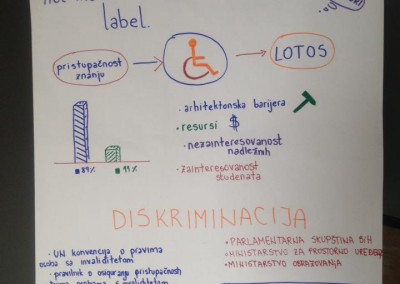 label.
pristupačnost
znanju
LOTOS
• arhitektonska barijera
• resursi $
• nezainteresovanost
nadležnih
• zainteresovanost
studenata
89% 11%
DISKRIMINACIJA
• UN konvencija o pravima
osoba sa invaliditetom
• pravilnik o osiguranju pristupačnosti
• PARLAMENTARNA SKUPŠTINA BiH
• MINISTARSTVO ZA PROSTORNO UREĐENJE
• MINISTARSTVO OBRAZOVANJA